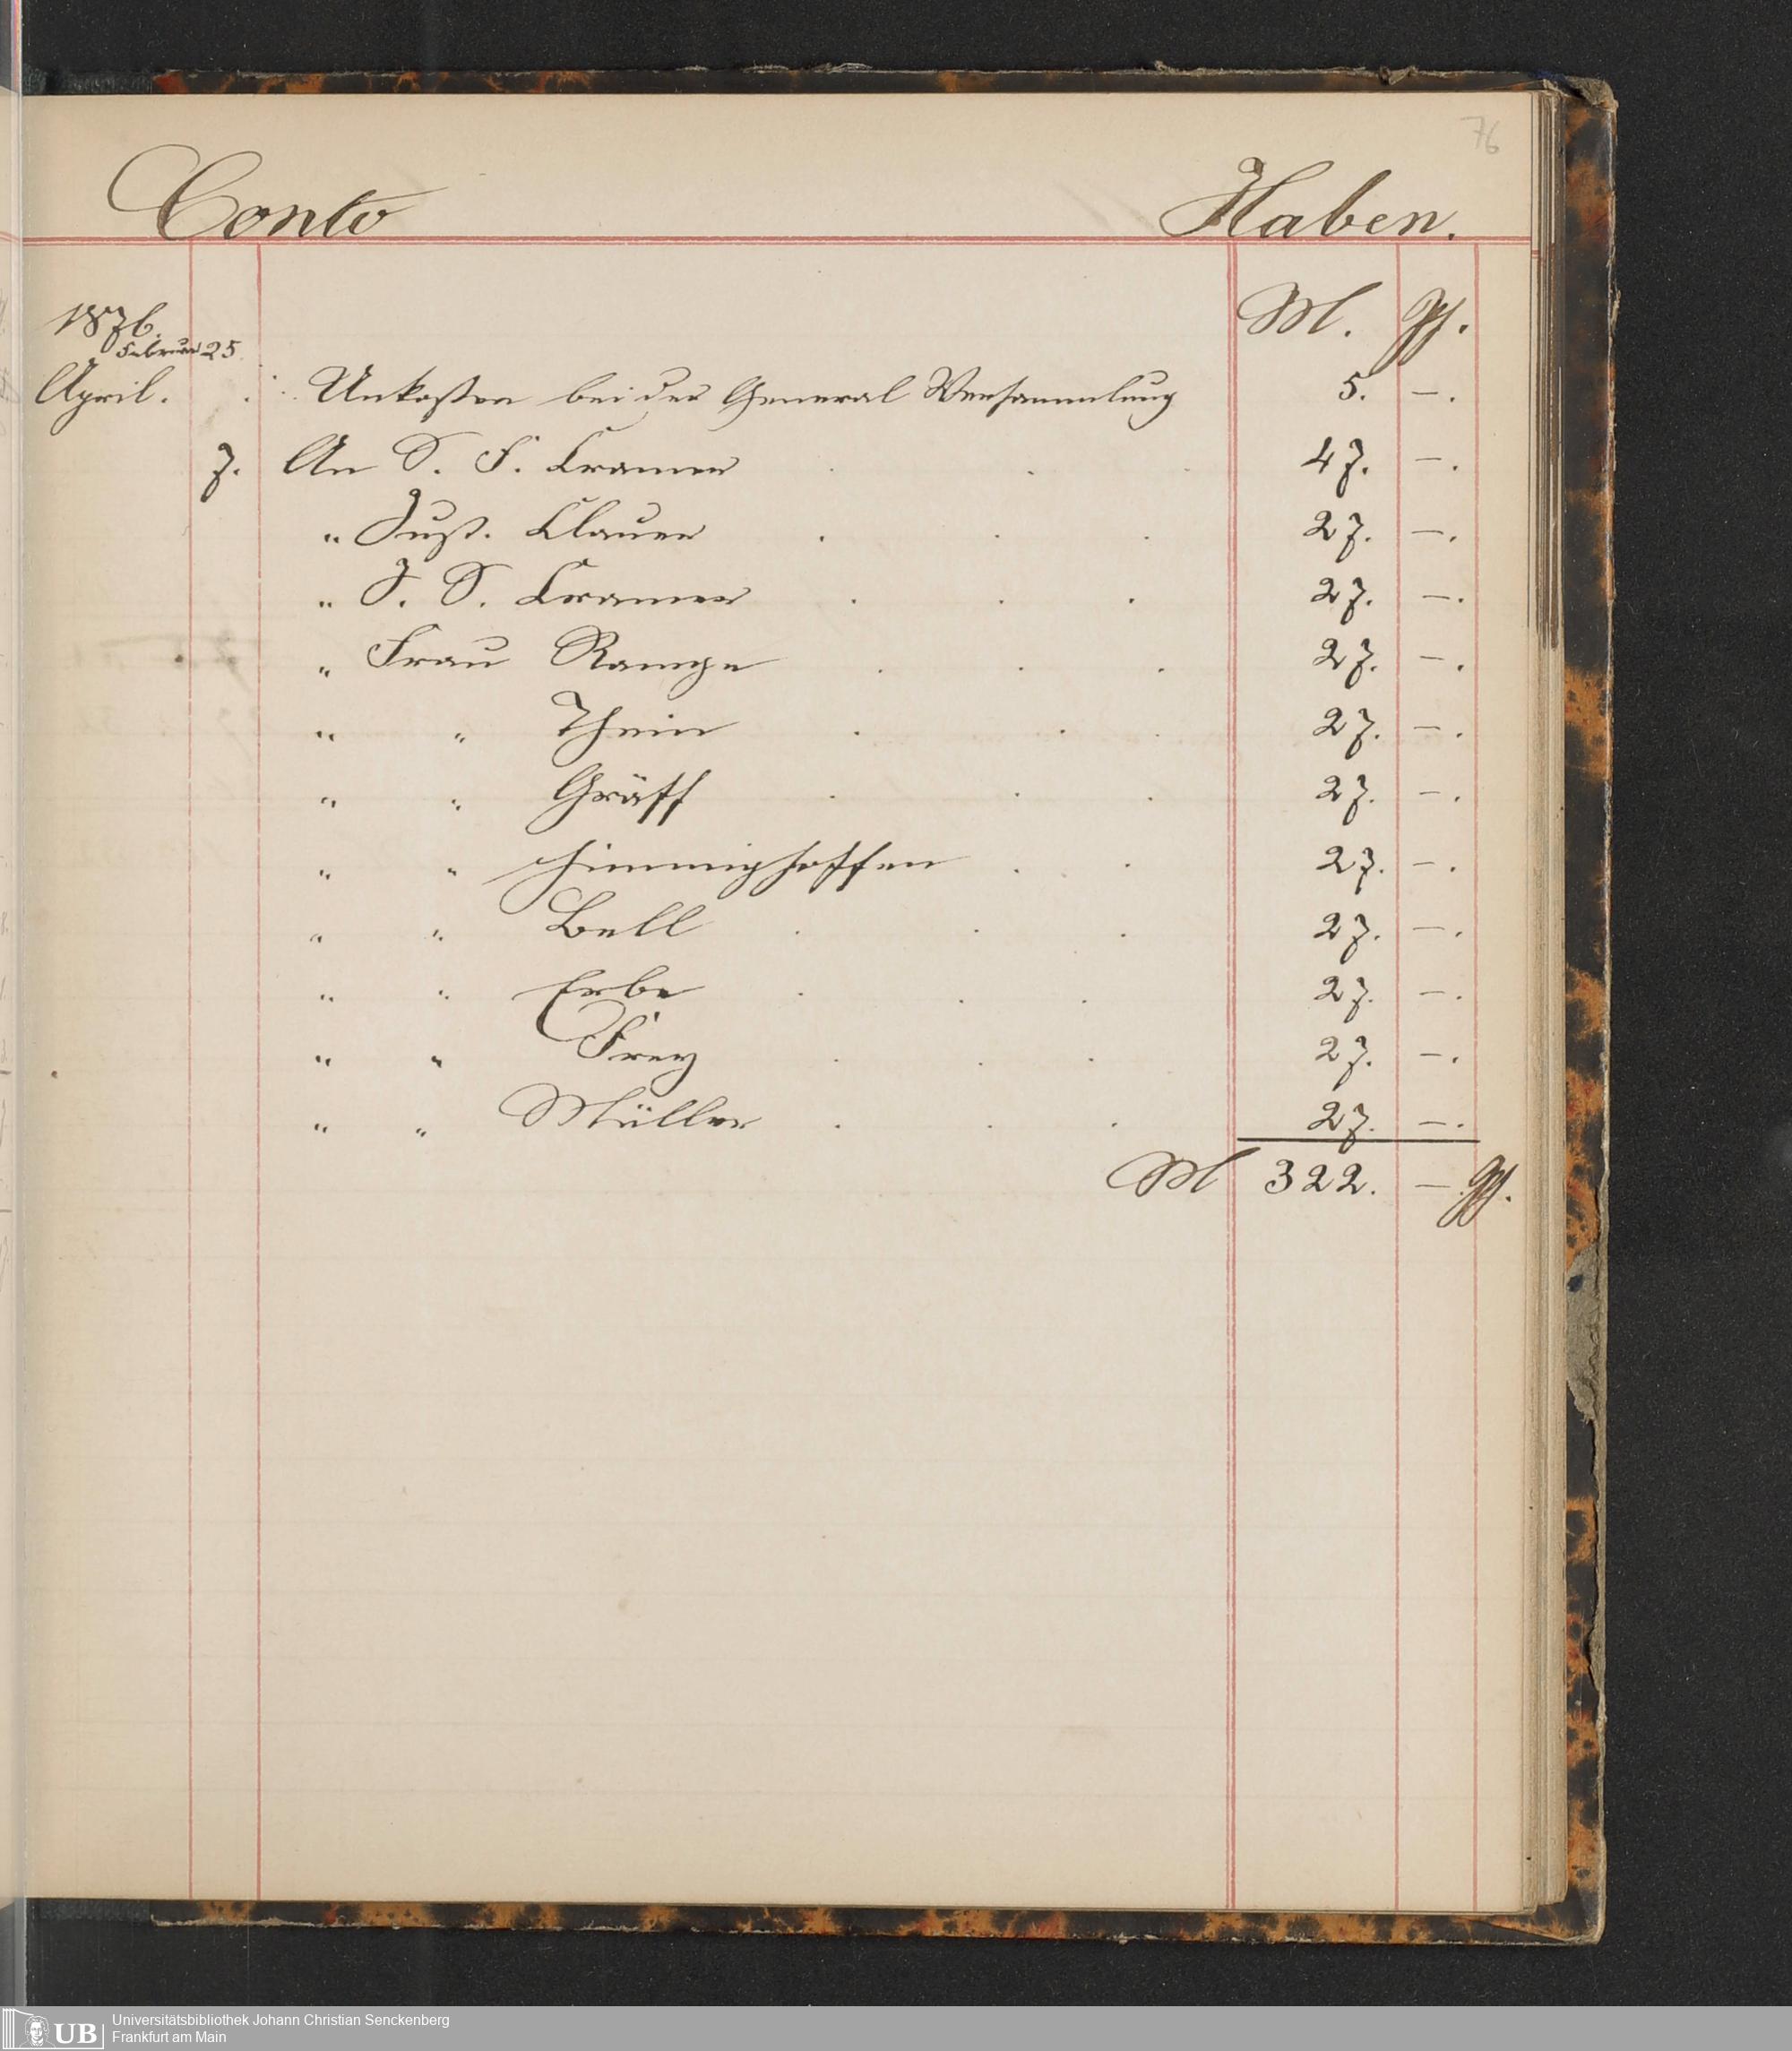 76
Conto Haben.
1876. M. Pf.
Februar 25.
April. Unkosten bei der General Versammlung 5. —.
7. An S. F. Cramer 47. —.
„ Just. Clauer 27. —.
„ J. S. Cramer 27. —.
„ Frau Rampe 27. —.
„ „ Thein 27. —.
„ „ Gräff 27. —.
„ „ Himmighoffen 27. —.
„ „ Bell 27. —.
„ „ Erbe 27. —.
„ „ Frey 27. —.
„ „ Müller 27. —.
M 322. — Pf.
UB Universitätsbibliothek Johann Christian Senckenberg
Frankfurt am Main